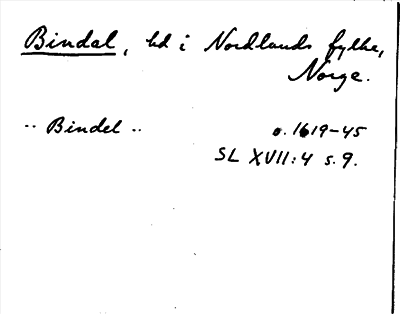 Bindal, hd i Nordlands fylke,
Norge.
-- Bindel -- o. 1619-45
SL XVII:4 s. 9.